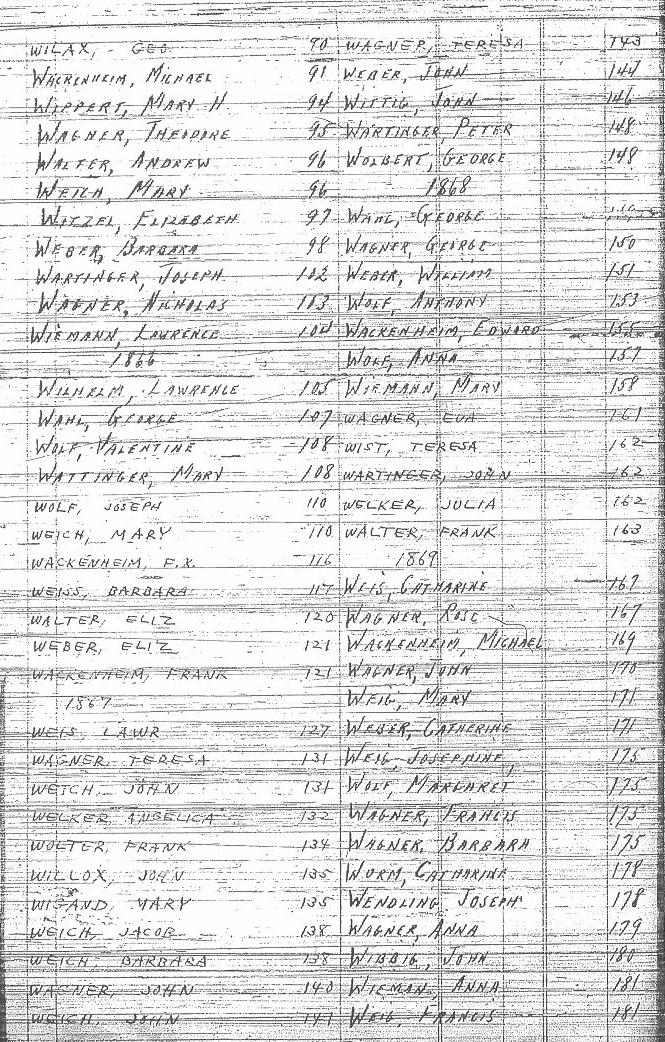 WILAX, GEO. 90
WACKENHEIM, MICHAEL 91
WIPPERT, MARY H. 94
WAGNER, THEODORE 95
WALTER, ANDREW 96
WEICH, MARY 96
WITZEL, ELIZABETH 97
WEBER, BARBARA 98
WARTINGER, JOSEPH 102
WAGNER, NICHOLAS 103
WIEMANN, LAWRENCE 104
1866
WILHELM, LAWRENCE 105
WAHL, GEORGE 107
WOLF, VALENTINE 108
WATTINGER, MARY 108
WOLF, JOSEPH 110
WEICH, MARY 110
WACKENHEIM, F.X. 116
WEISS, BARBARA 117
WALTER, ELIZ 120
WEBER, ELIZ 121
WACKENHEIM, FRANK 121
1867
WEIS, LAWR 127
WAGNER, TERESA 131
WETCH, JOHN 131
WELKER, ANGELICA 132
WOLTER, FRANK 134
WILLOX, JOHN 135
WIGAND, MARY 135
WEICH, JACOB 138
WEICH, BARBARA 138
WAGNER, JOHN 140
WEICH, JOHN 141
WAGNER, TERESA 143
WEBER, JOHN 144
WITTIG, JOHN 146
WARTINGER, PETER 148
WOLBERT, GEORGE 148
1868
WAHL, GEORGE
WAGNER, GEORGE 150
WEBER, WILLIAM 151
WOLF, ANTHONY 153
WACKENHEIM, EDWARD 155
WOLF, ANNA 157
WIEMANN, MARY 158
WAGNER, EVA 161
WIST, TERESA 162
WARTINGER, JOHN 162
WELKER, JULIA 162
WALTER, FRANK 163
1869
WEIS, CATHARINE 167
WAGNER, ROSE 167
WACKENHEIM, MICHAEL 169
WAGNER, JOHN 170
WEIG, MARY 171
WEBER, CATHERINE 171
WEIG, JOSEPHINE 175
WOLF, MARGARET 175
WAGNER, FRANCIS 175
WAGNER, BARBARA 175
WURM, CATHARINE 178
WENDLING, JOSEPH 178
WAGNER, ANNA 179
WIBBIG, JOHN 180
WIEMAN, ANNA 181
WEIG, FRANCIS 181